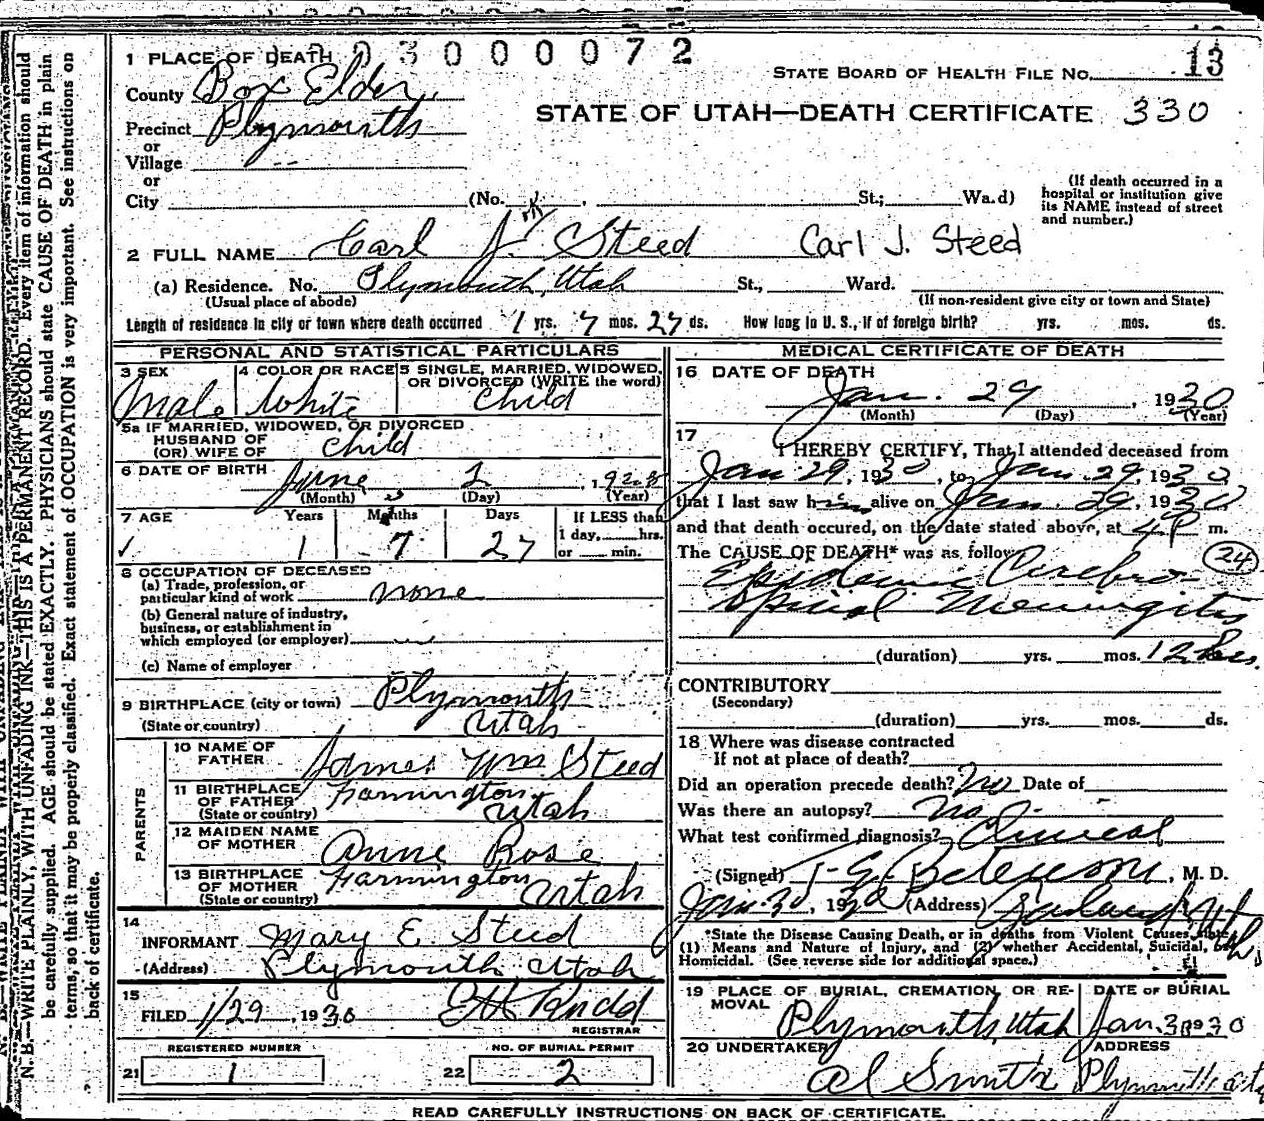 3000072
1 PLACE OF DEATH
STATE BOARD OF HEALTH FILE NO. 13
County Box Elder
STATE OF UTAH—DEATH CERTIFICATE 330
Precinct Plymouth
or
Village --
or
City (No. , St.; Wa.d)
(If death occurred in a hospital or institution give its NAME instead of street and number.)
2 FULL NAME Carl J. Steed Carl J. Steed
(a) Residence. No. Plymouth, Utah St., Ward.
(Usual place of abode) (If non-resident give city or town and State)
Length of residence in city or town where death occurred 1 yrs. 7 mos. 27 ds. How long in U. S., if of foreign birth? yrs. mos. ds.
PERSONAL AND STATISTICAL PARTICULARS
3 SEX Male
4 COLOR OR RACE White
5 SINGLE, MARRIED, WIDOWED, OR DIVORCED (WRITE the word) Child
5a IF MARRIED, WIDOWED, OR DIVORCED
HUSBAND OF
(OR) WIFE OF Child
6 DATE OF BIRTH June 2, 1928
(Month) (Day) (Year)
7 AGE Years Months Days If LESS than
1 7 27 1 day, hrs.
or min.
8 OCCUPATION OF DECEASED
(a) Trade, profession, or
particular kind of work none
(b) General nature of industry,
business, or establishment in
which employed (or employer)
(c) Name of employer
9 BIRTHPLACE (city or town) Plymouth
(State or country) Utah
PARENTS
10 NAME OF
FATHER James Wm Steed
11 BIRTHPLACE
OF FATHER Farmington
(State or country) Utah
12 MAIDEN NAME
OF MOTHER Anne Rose
13 BIRTHPLACE
OF MOTHER Farmington
(State or country) Utah
14
INFORMANT Mary E. Steed
(Address) Plymouth, Utah
15
FILED 1/29, 1930
REGISTRAR
REGISTERED NUMBER NO. OF BURIAL PERMIT
21 1 22 2
MEDICAL CERTIFICATE OF DEATH
16 DATE OF DEATH
Jan. 29, 1930
(Month) (Day) (Year)
17
I HEREBY CERTIFY, That I attended deceased from
Jan 29, 1930, to Jan. 29, 1930
that I last saw him alive on Jan. 29, 1930
and that death occured, on the date stated above, at 4 P m.
The CAUSE OF DEATH* was as follow 24
Epidemic Cerebro-
Spinal Meningitis
(duration) yrs. mos. 12 hrs.
CONTRIBUTORY
(Secondary)
(duration) yrs. mos. ds.
18 Where was disease contracted
If not at place of death?
Did an operation precede death? No Date of
Was there an autopsy? No
What test confirmed diagnosis? Clinical
(Signed) , M. D.
Jan 30, 1930 (Address) Garland, Utah
*State the Disease Causing Death, or in deaths from Violent Causes, state
(1) Means and Nature of Injury, and (2) whether Accidental, Suicidal, or
Homicidal. (See reverse side for additional space.)
19 PLACE OF BURIAL, CREMATION, OR RE- DATE OF BURIAL
MOVAL
Plymouth, Utah Jan. 30 1930
20 UNDERTAKER ADDRESS
Al Smith Plymouth
READ CAREFULLY INSTRUCTIONS ON BACK OF CERTIFICATE.
N. B.—WRITE PLAINLY, WITH UNFADING INK—THIS IS A PERMANENT RECORD. Every item of information should
be carefully supplied. AGE should be stated EXACTLY. PHYSICIANS should state CAUSE OF DEATH in plain
terms, so that it may be properly classified. Exact statement of OCCUPATION is very important. See instructions on
back of certificate.